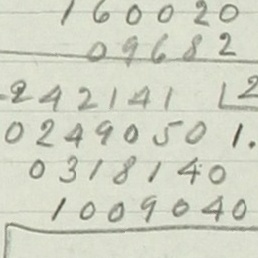 160020
09682
-242141 2
02490501.
0318140
1009040